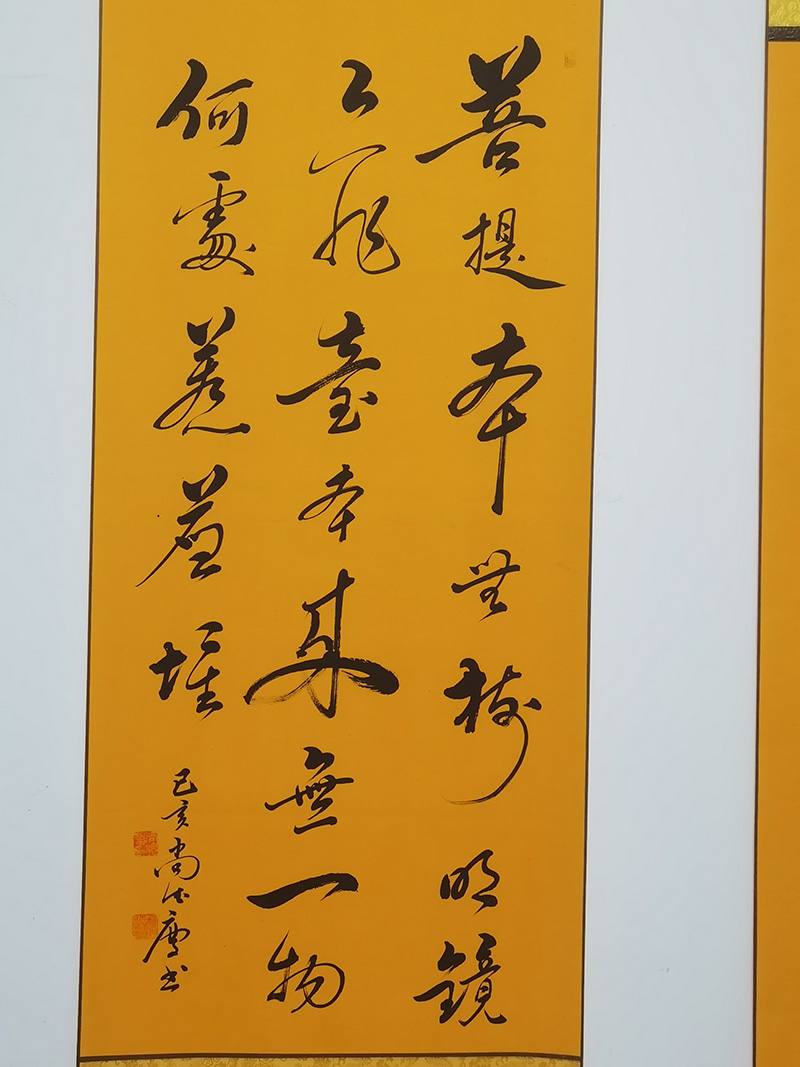 菩提本無樹明鏡
亦非臺本來無一物
何處惹塵埃
己亥尚书